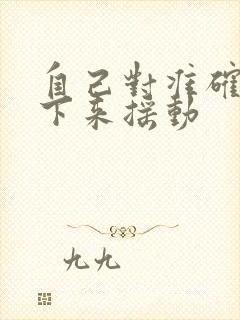 自己對准確
下来摇動
九九